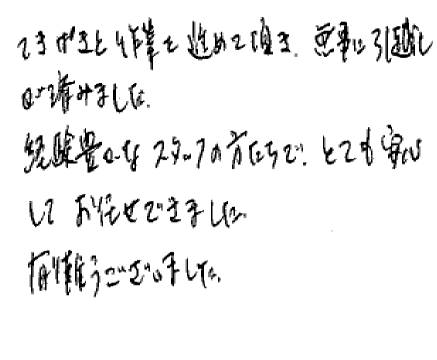 てきぱきと作業を進めて頂き、無事に引越し
が済みました。
経験豊かなスタッフの方たちで、とても安心
して お任せできました。
有難うございました。